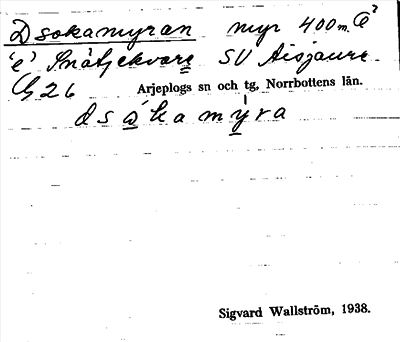 Dsokamyran myr 400 m. Ö
Snåtjekvare SV Aisjaure.
G 26 Arjeplogs sn och tg, Norrbottens län.
dsåkamyra
Sigvard Wallström, 1938.